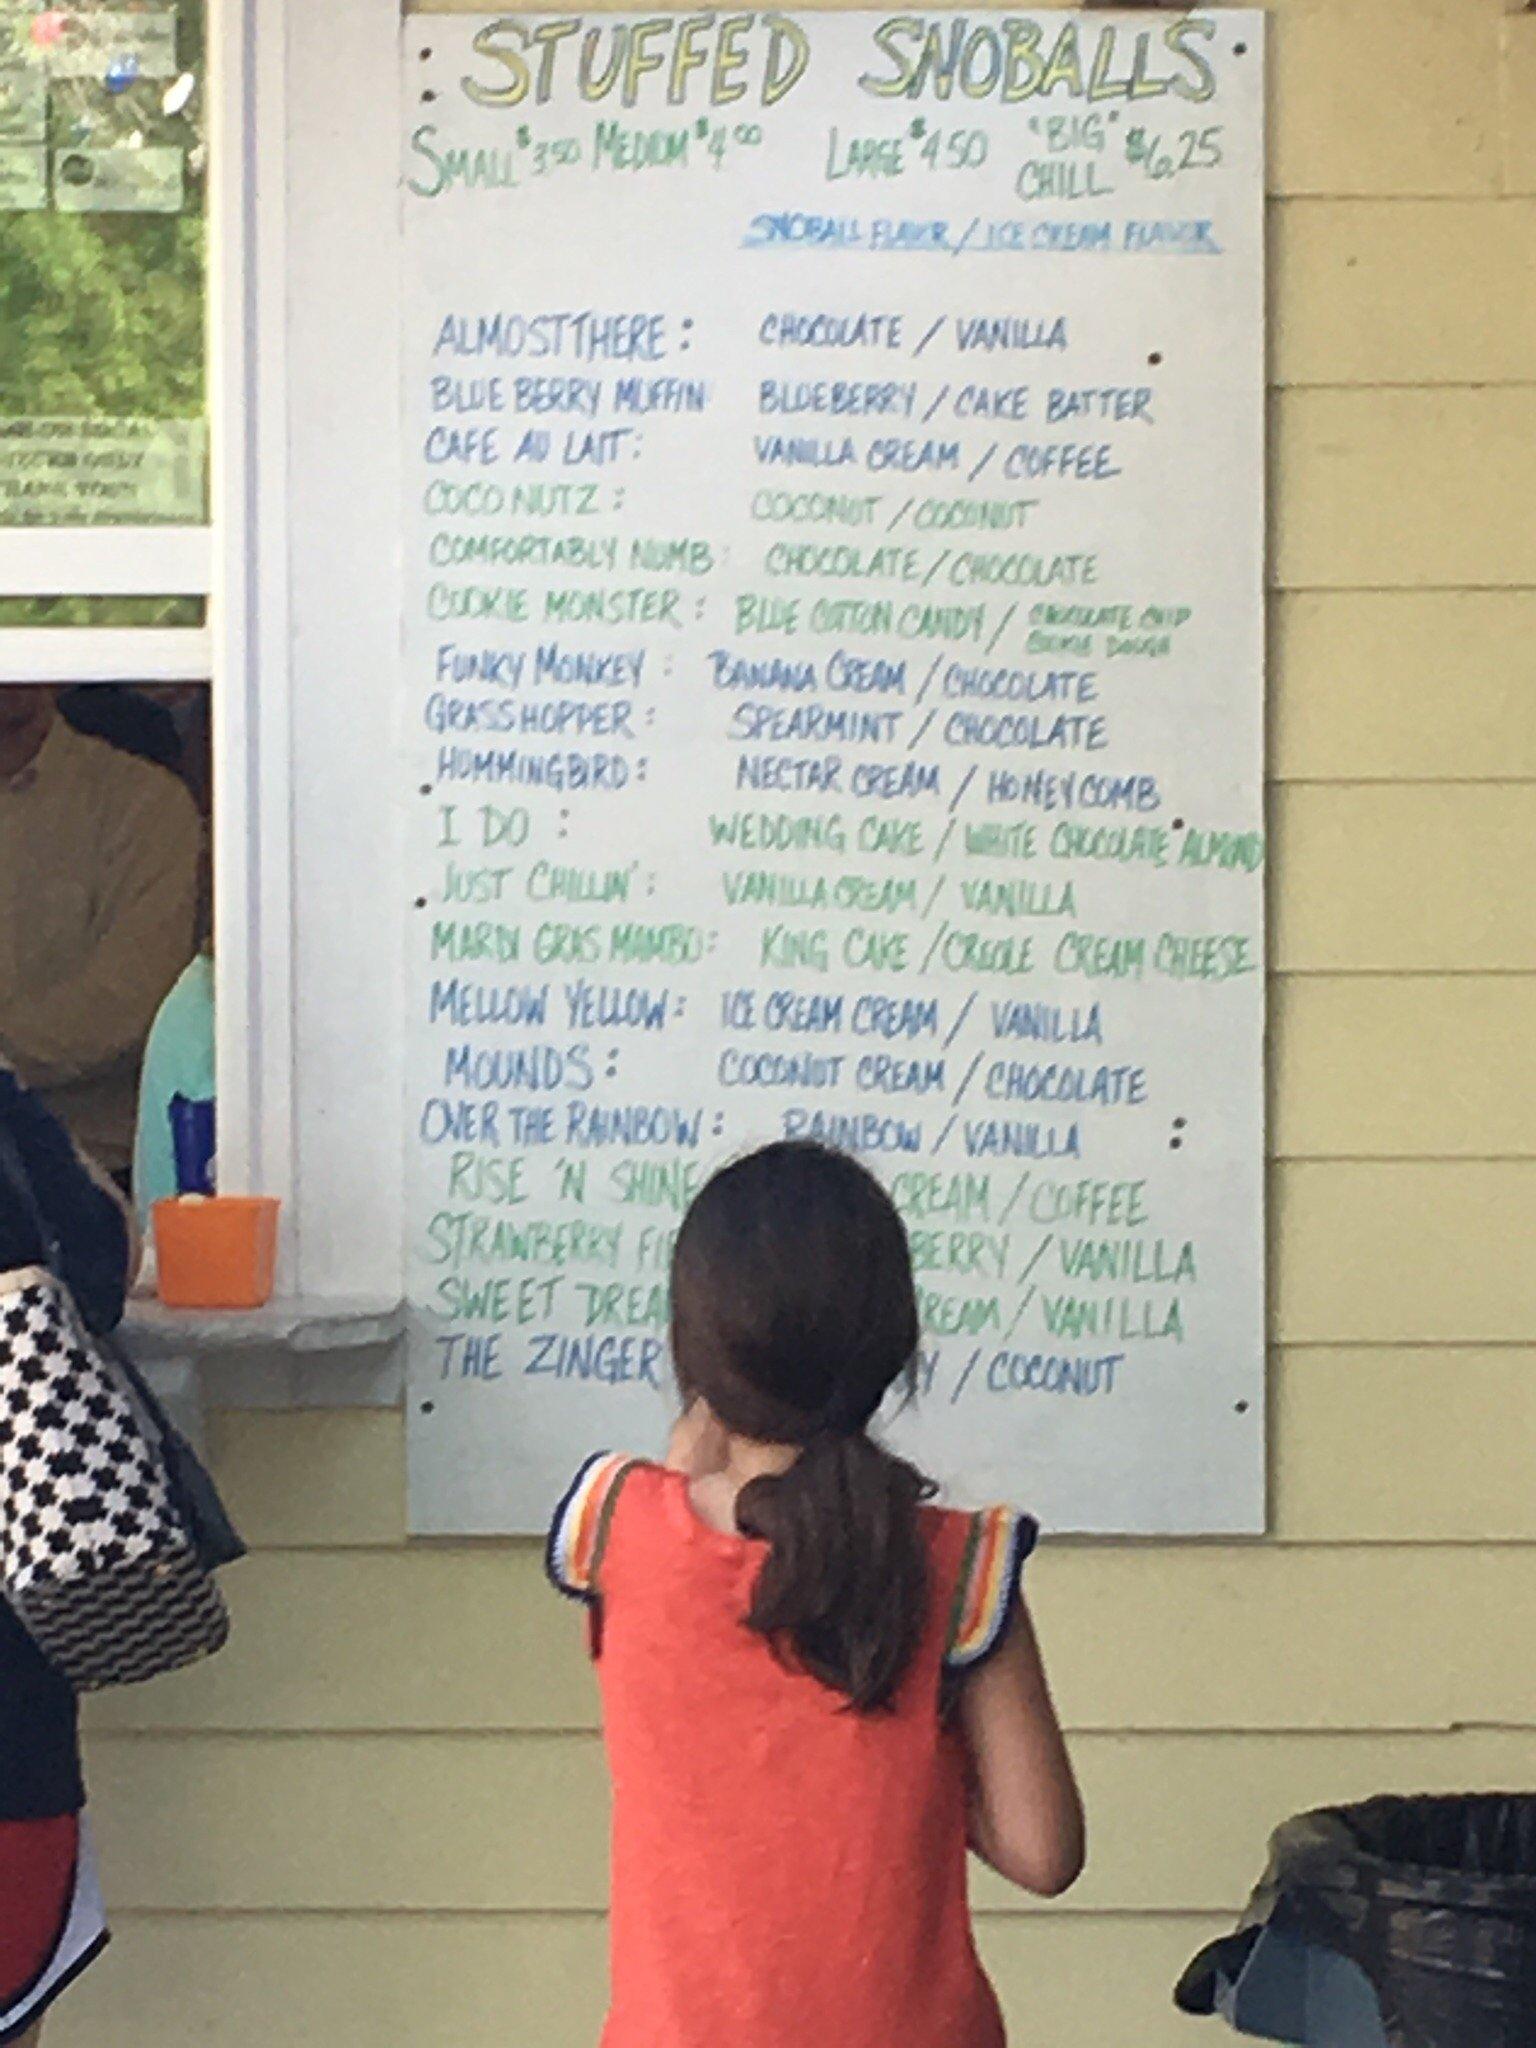 STUFFED SNOBALLS
SMALL $3.50 MEDIUM $4.00 LARGE $4.50 "BIG" CHILL $6.25
SNOBALL FLAVOR / ICE CREAM FLAVOR
ALMOST THERE: CHOCOLATE / VANILLA
BLUE BERRY MUFFIN BLUEBERRY / CAKE BATTER
CAFE AU LAIT: VANILLA CREAM / COFFEE
COCO NUTZ: COCONUT / COCONUT
COMFORTABLY NUMB: CHOCOLATE / CHOCOLATE
COOKIE MONSTER: BLUE COTTON CANDY / CHOCOLATE CHIP COOKIE DOUGH
FUNKY MONKEY: BANANA CREAM / CHOCOLATE
GRASSHOPPER: SPEARMINT / CHOCOLATE
HUMMINGBIRD: NECTAR CREAM / HONEYCOMB
I DO: WEDDING CAKE / WHITE CHOCOLATE ALMOND
JUST CHILLIN': VANILLA CREAM / VANILLA
MARDI GRAS MAMBO: KING CAKE / CREOLE CREAM CHEESE
MELLOW YELLOW: ICE CREAM CREAM / VANILLA
MOUNDS: COCONUT CREAM / CHOCOLATE
OVER THE RAINBOW: RAINBOW / VANILLA
RISE 'N SHINE CREAM / COFFEE
STRAWBERRY FI BERRY / VANILLA
SWEET DREA REAM / VANILLA
THE ZINGER Y / COCONUT